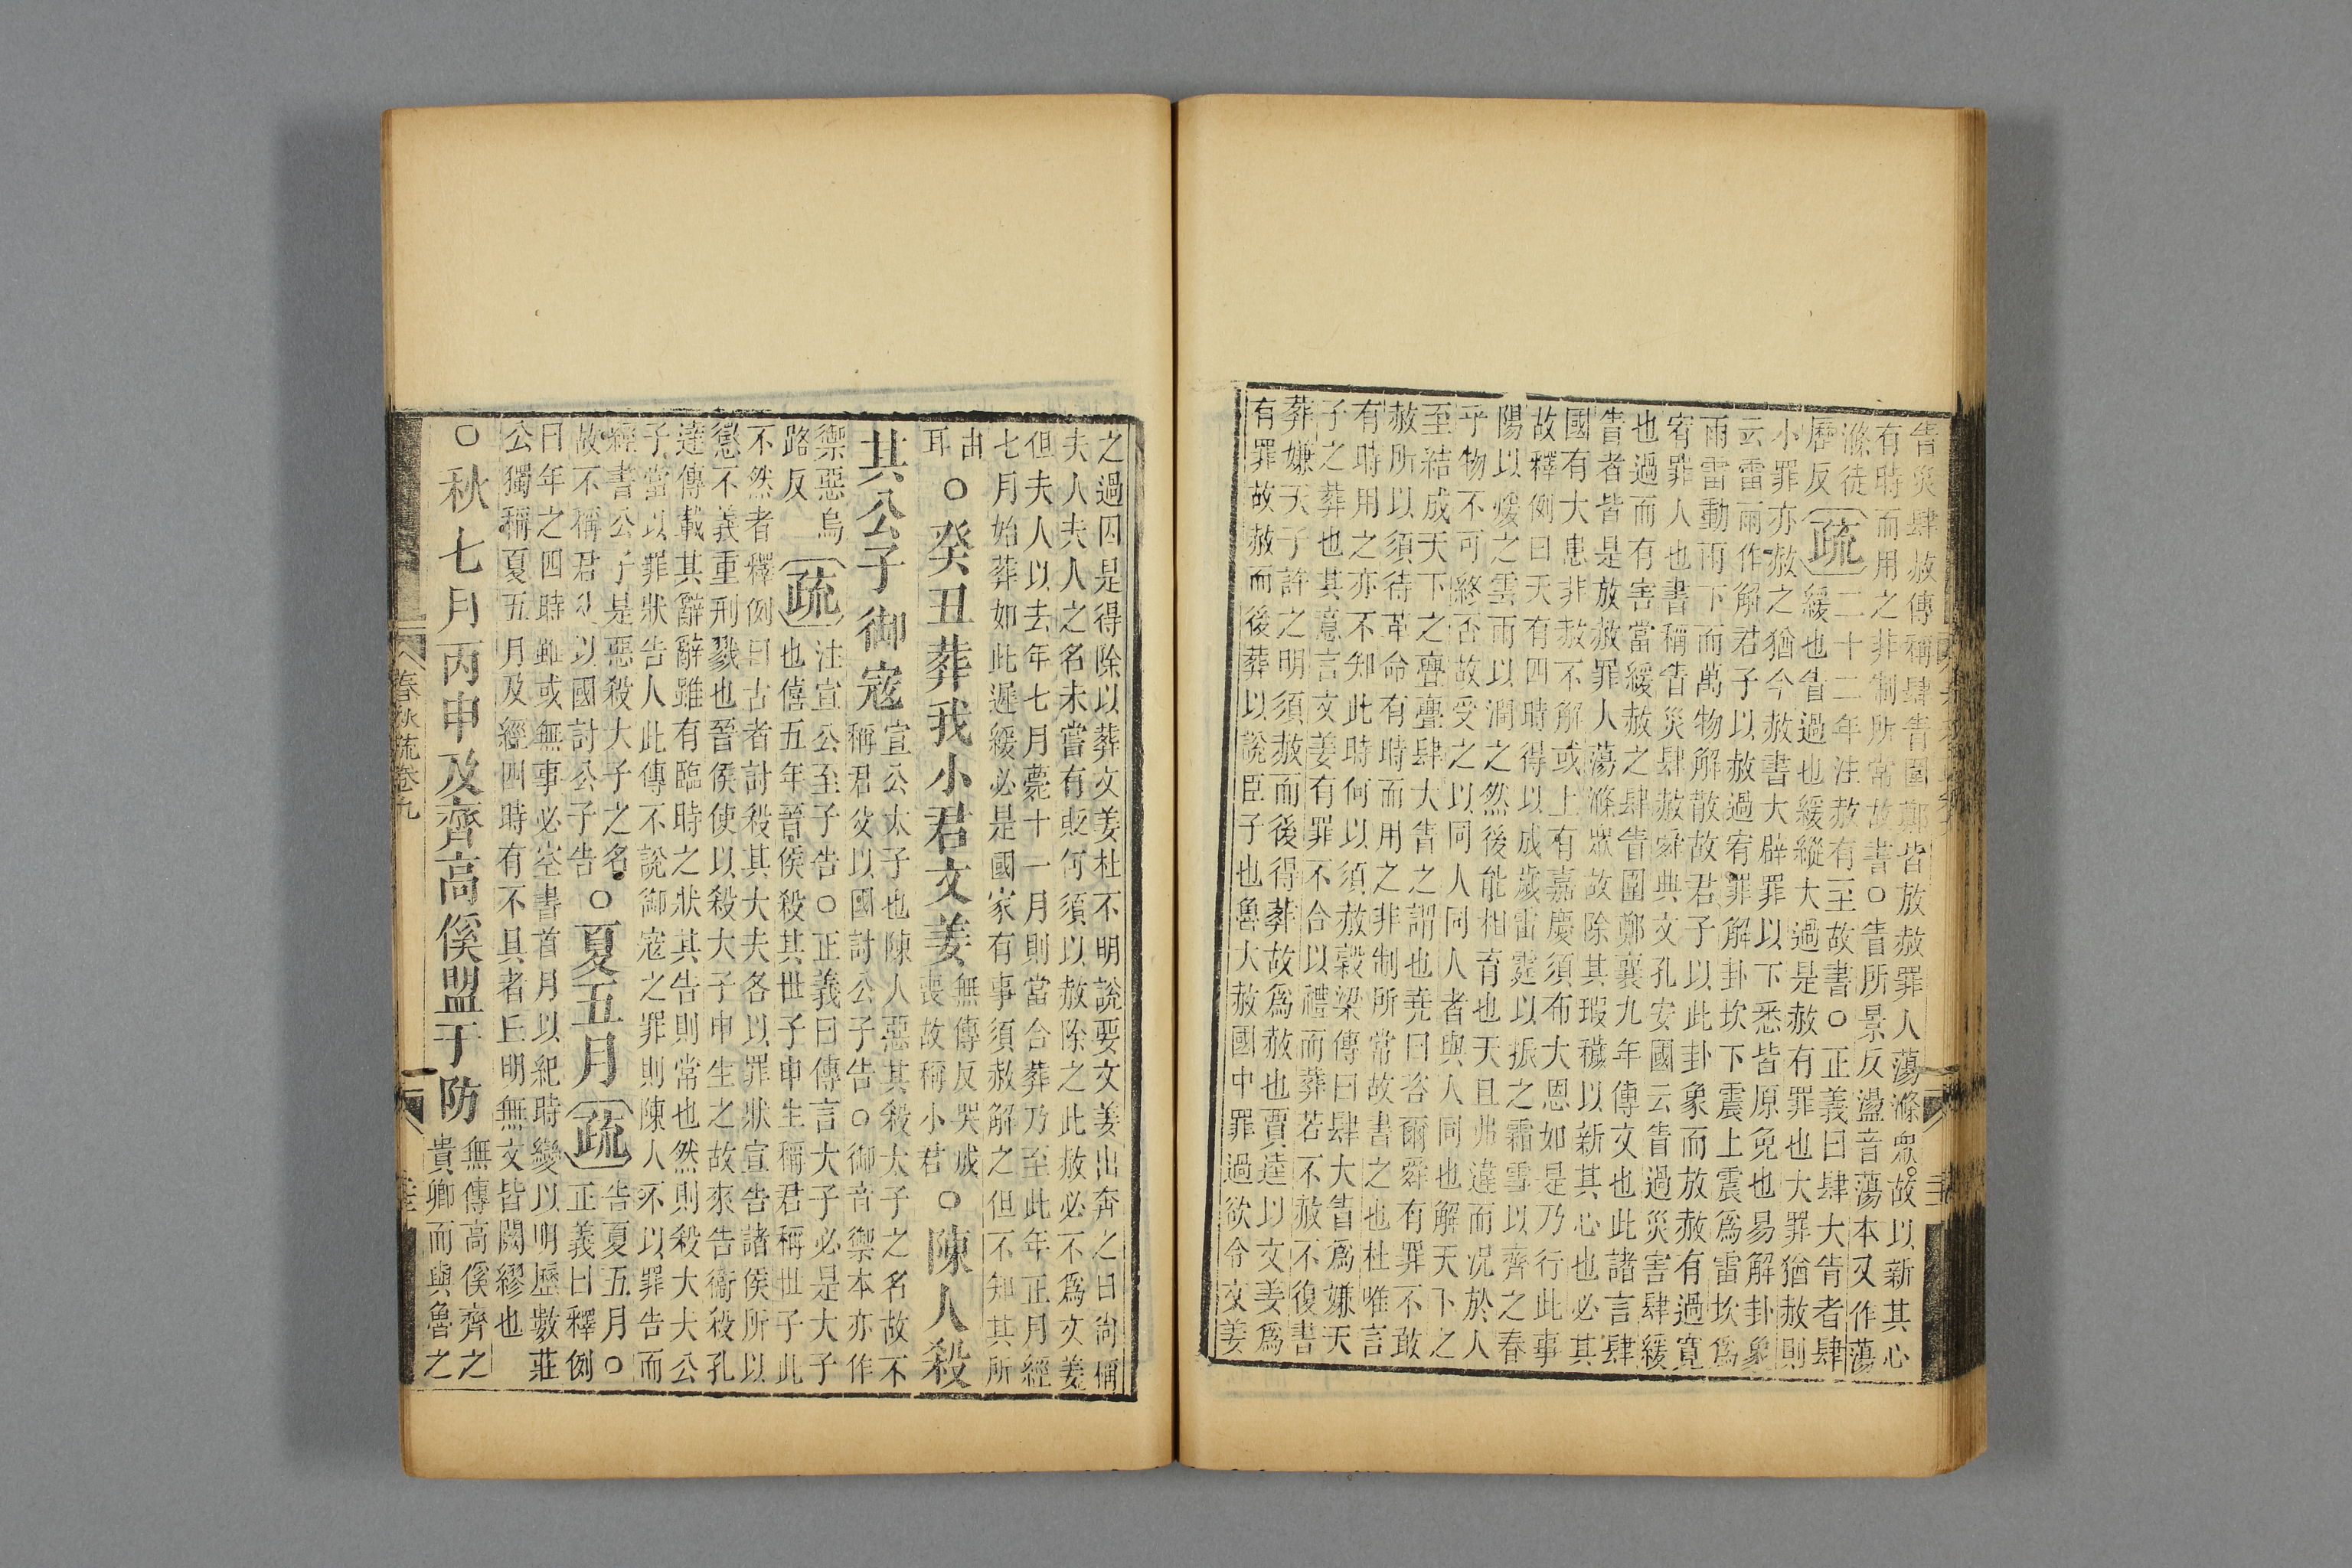 眚災肆赦傳稱肆眚圍鄭皆放赦罪人蕩滌衆故以新其心
有時而用之非制所常故書○眚所景反盪音蕩本又作蕩
滌徒
歷反
疏
二十二年注赦有至故書○正義曰肆大眚者肆
緩也眚過也緩縱大過是赦有罪也大罪猶赦則
小罪亦赦之猶今赦書大辟罪以下悉皆原免也易解卦象
云雷雨作解君子以赦過宥罪解卦坎下震上震爲雷坎爲
雨雷動雨下而萬物解散故君子以此卦象而放赦有過寬
宥罪人也書稱眚災肆赦舜典文孔安國云眚過災害肆緩
也過而有害當緩赦之肆眚圍鄭襄九年傳文也此諸言肆
眚者皆是放赦罪人蕩滌衆故除其瑕穢以新其心也必其
國有大患非赦不解或上有嘉慶須布大恩如是乃行此事
故釋例曰天有四時得以成歲雷霆以振之霜雪以齊之春
陽以煖之雲雨以潤之然後能相育也天且弗違而況於人
乎物不可終否故受之以同人同人者與人同也解天下之
至結成天下之亹亹肆大眚之謂也堯曰咨爾舜有罪不敢
赦所以須待革命有時而用之非制所常故書之也杜唯言
有時用之亦不知此時何以須赦穀梁傳曰肆大眚爲嫌天
子之葬也其意言文姜有罪不合以禮而葬若不赦不復書
葬嫌天子許之明須赦而後得葬故爲赦也賈逵以文姜爲
有罪故赦而後葬以說臣子也魯大赦國中罪過欲令文姜
之過因是得除以葬文姜杜不明說要文姜出奔之日尚稱
夫人夫人之名未嘗有貶何須以赦除之此赦必不爲文姜
但夫人以去年七月薨十一月則當合葬乃至此年正月經
七月始葬如此遲緩必是國家有事須赦解之但不知其所
由
耳
○癸丑葬我小君文姜
無傳反哭成
喪故稱小君
○陳人殺
共公子御寇
宣公太子也陳人惡其殺太子之名故不
稱君父以國討公子告○御音禦本亦作
禦惡烏
路反
疏
注宣公至子告○正義曰傳言大子必是大子
也僖五年晉侯殺其世子申生稱君稱世子此
不然者釋例曰古者討殺其大夫各以罪狀宣告諸侯所以
懲不義重刑戮也晉侯使以殺大子申生之故來告衞殺孔
達傳載其辭辭雖有臨時之狀其告則常也然則殺大夫公
子當以罪狀告人此傳不說御寇之罪則陳人不以罪告而
經書公子是惡殺大子之名
故不稱君父以國討公子告
○夏五月
疏
告夏五月○
正義曰釋例
曰年之四時雖或無事必空書首月以紀時變以明歷數莊
公獨稱夏五月及經四時有不具者丘明無文皆闕繆也
○秋七月丙申及齊高傒盟于防
無傳高傒齊之
貴卿而與魯之
春秋疏卷九